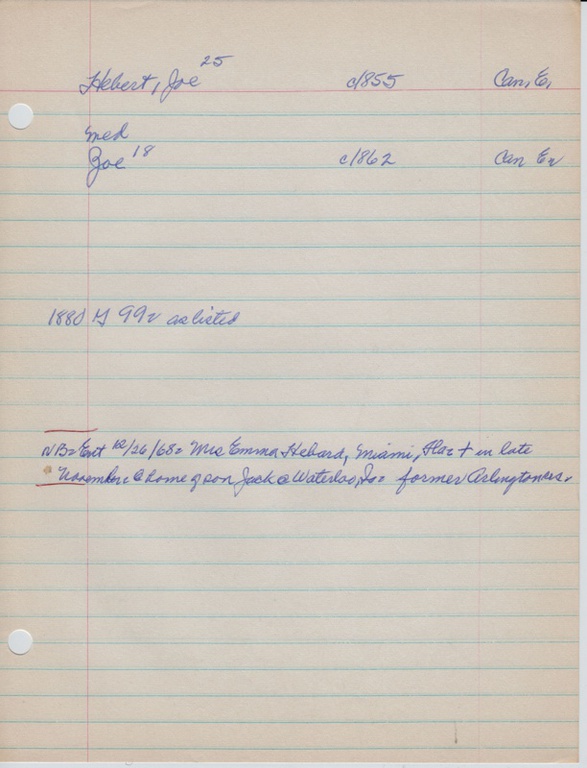 Hebert, Joe 25 c1855 Can, E,
med
Zoe 18 c1862 Can E
1880 99 as listed
NB= Ent 12/26/68= Mrs Emma Hebard, Miami, Fla= + in late
November @ home of son Jack @ Waterloo, Io= former Arlingtonces.